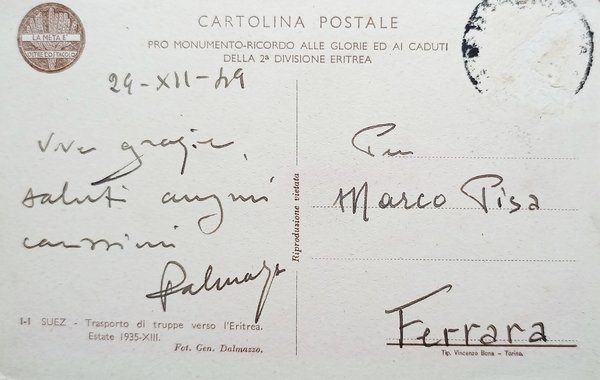 LA META È
OLTRE L'OSTACOLO
CARTOLINA POSTALE
PRO MONUMENTO-RICORDO ALLE GLORIE ED AI CADUTI
DELLA 2ª DIVISIONE ERITREA
29-XII-49
Vive grazie,
saluti auguri
carissimi
Riproduzione vietata
Marco Pisa
Ferrara
1-1 SUEZ - Trasporto di truppe verso l'Eritrea.
Estate 1935-XIII.
Fot. Gen. Dalmazzo.
Tip. Vincenzo Bona - Torino.